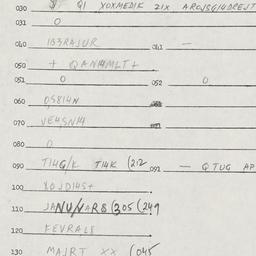 030 $ QI XOXMEDIK 21X AROJSGI4DREJT
031 O
040 1B3RAJUR 041 —
050 + QAN14MLT+
051 O 052 O
060 O,S814N
070 VE4SN14
080 O
090 T14G/K T14K (212 091 — QTUG AP
100 XOJD14S+
110 JANU/VARS (305 (249
120 FEVRALS
130 MAJRT XX (045